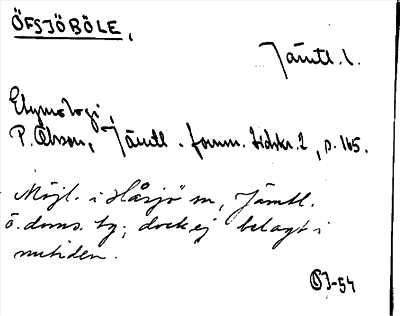 ÖFSJÖBÖLE,
Jämtl. l.
Etymologi,
P. Olsson, Jämtl. fornm. tidskr. 2, p. 165.
Möjl. i Håsjö sn, Jämtl.
ö. doms. tg; dock ej belagt i
nutiden.
OJ-54